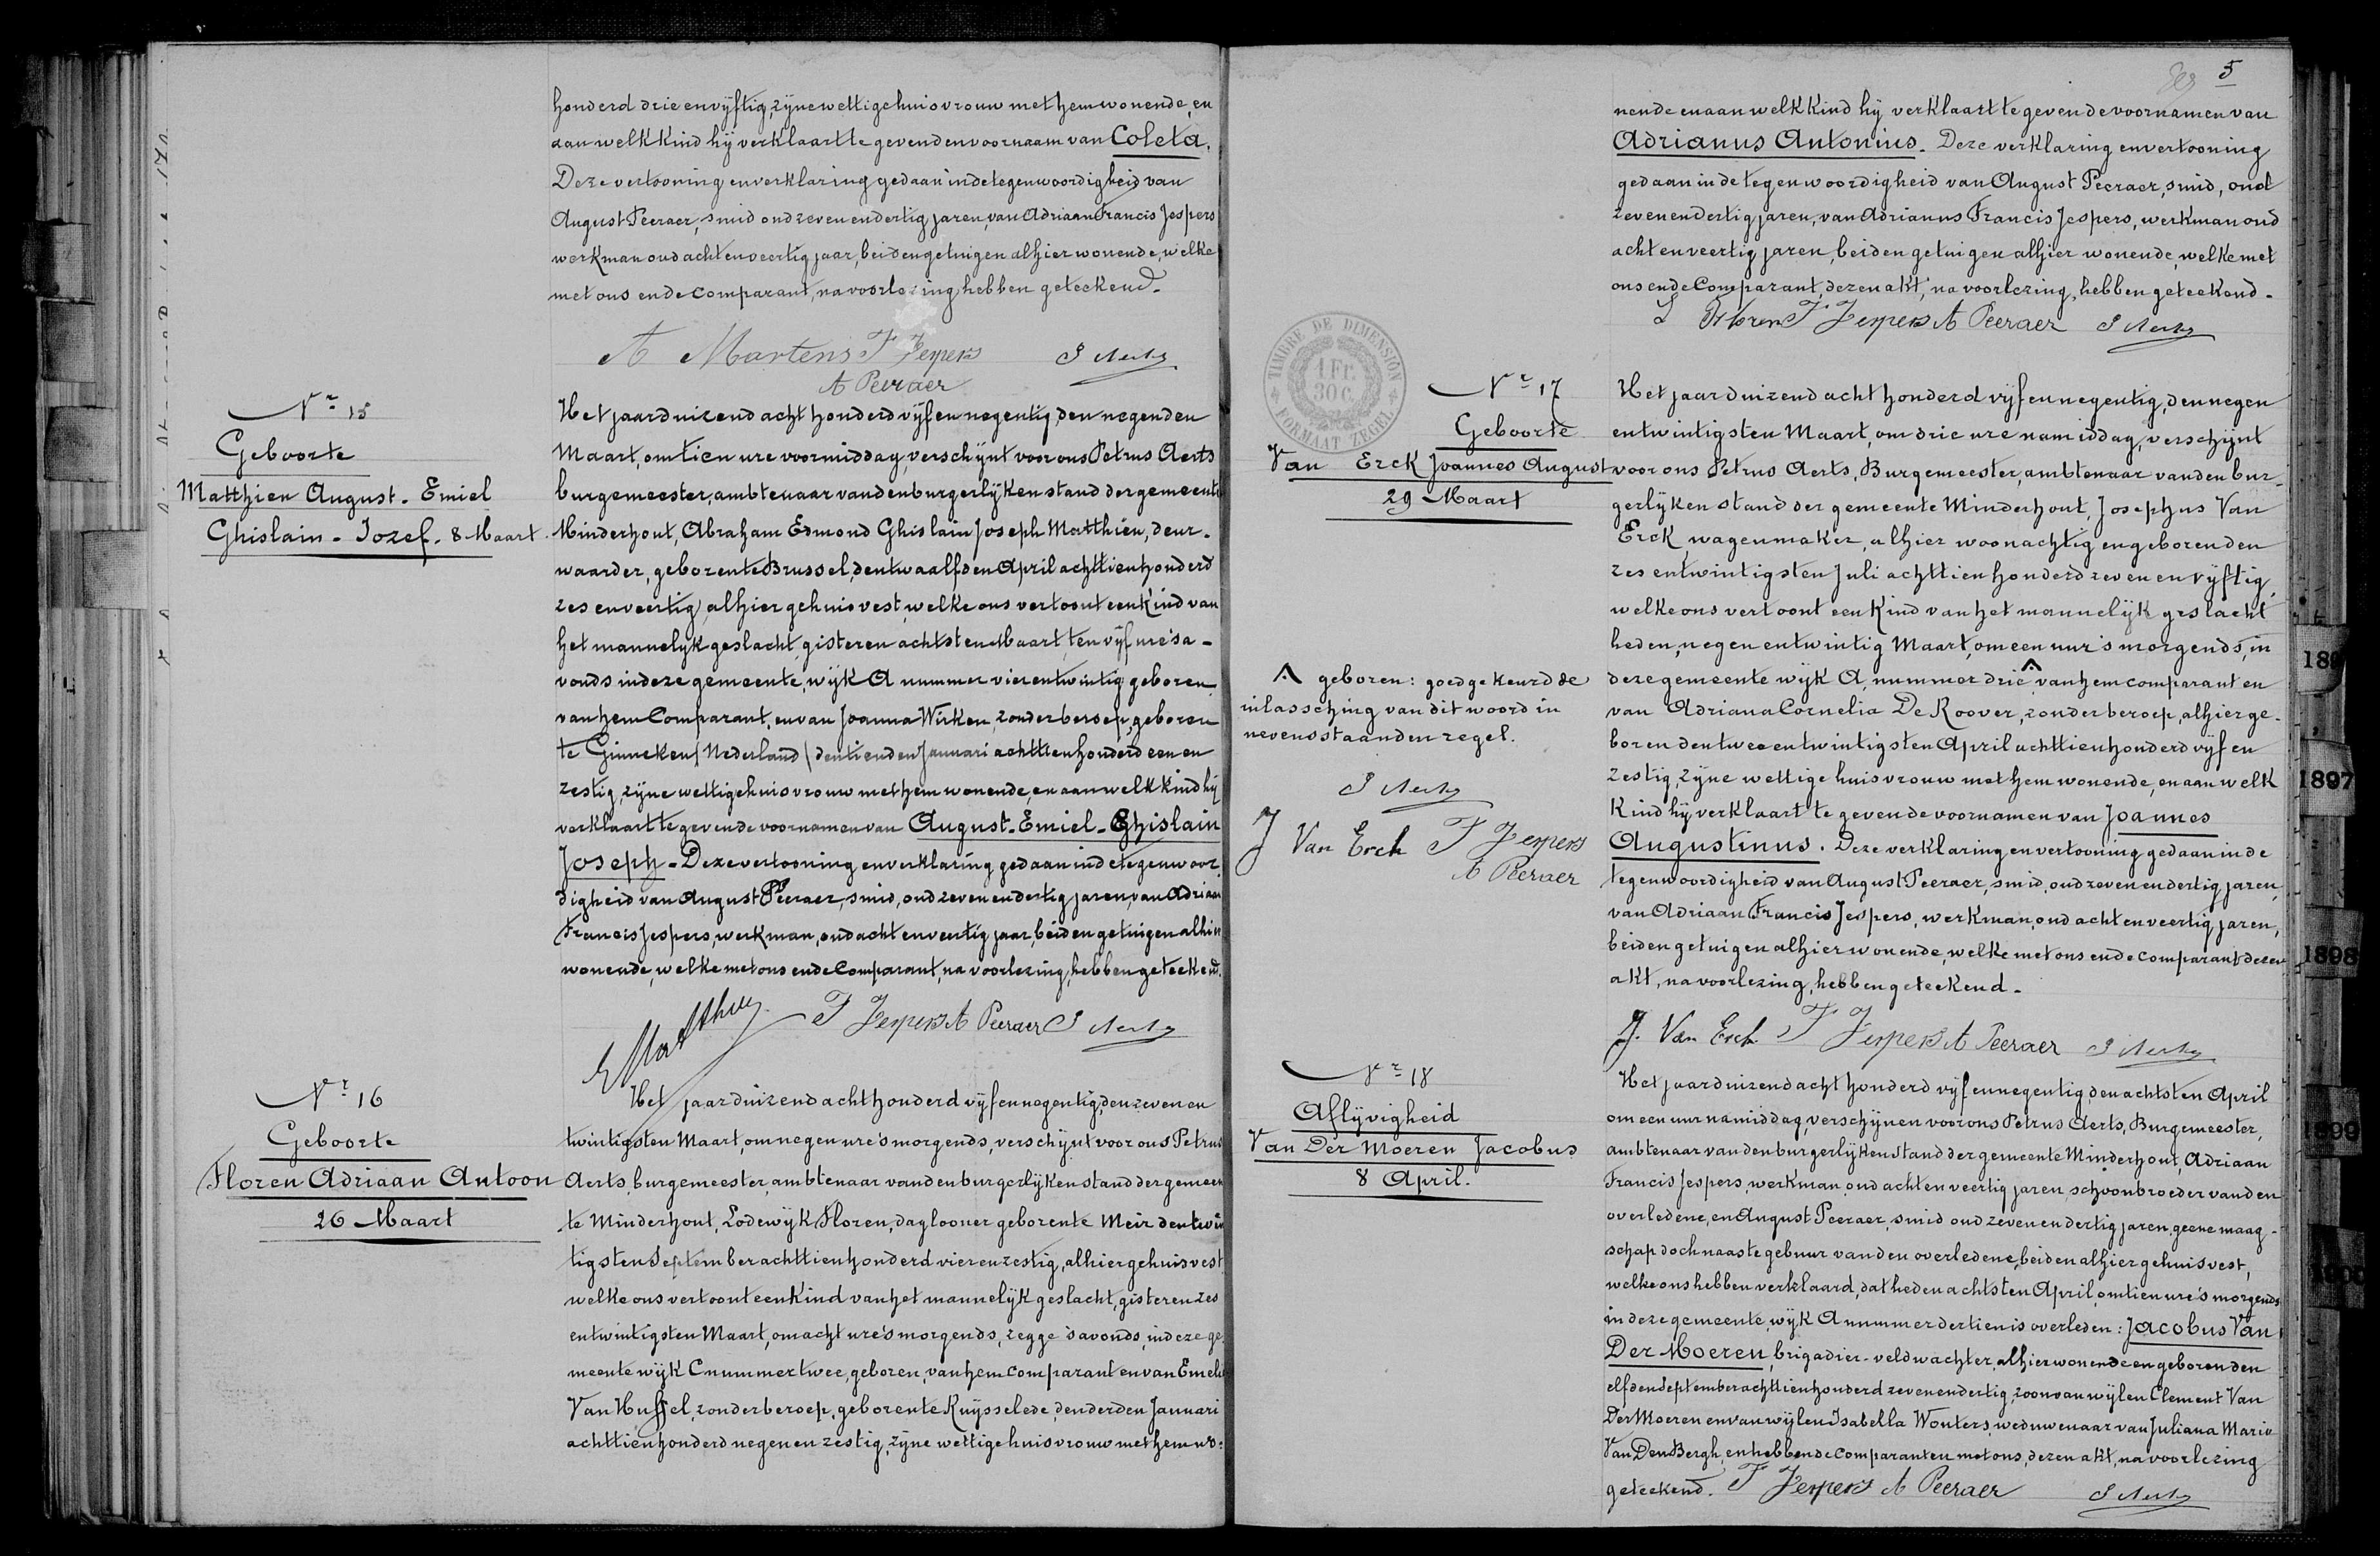 honderd drie en vyftig, zyne wettige huisvrouw met hem wonende, en
aan welk kind hy verklaart te geven den voornaam van Coleta.
Deze vertooning en verklaring gedaan in de tegenwoordigheid van
August Peeraer, smid oud zeven en dertig jaren, van Adriaan Francis Jespers
werkman oud acht en veertig jaar, beiden getuigen alhier wonende, welke
met ons en de comparant, na voorlezing hebben geteekend.
A Martens F Jespers P Aerts
A Peeraer
Nr 15
Geboorte
Matthieu August - Emiel
Ghislain - Jozef - 8 Maart.
Het jaar duizend acht honderd vyf en negentig, den negenden
Maart, om tien ure voormiddag, verschynt voor ons Petrus Aerts
burgemeester, ambtenaar van den burgerlyken stand der gemeente
Minderhout, Abraham Edmond Ghislain Joseph Matthieu, deur-
waarder, geboren te Brussel, den twaalfden April achttien honderd
zes en veertig, alhier gehuisvest, welke ons vertoont een kind van
het mannelyk geslacht, gisteren achtsten Maart, ten vyf ure 's a-
vonds in deze gemeente, wyk A nummer vier en twintig geboren
van hem Comparant, en van Joanna Wirken, zonder beroep, geboren
te Ginneken (Nederland) den tienden Januari achttien honderd een en
zestig, zyne wettige huisvrouw met hem wonende, en aan welk kind hy
verklaart te geven de voornamen van August - Emiel - Ghislain
Joseph - Deze vertooning en verklaring gedaan in de tegenwoor
digheid van August Peeraer, smid, oud zeven en dertig jaren, van Adriaan
Francis Jespers, werkman, oud acht en veertig jaar, beiden getuigen alhier
wonende, welke met ons en de Comparant, na voorlezing, hebben geteekend.
F Jespers A Peeraer P Aerts
Nr 16
Geboorte
Floren Adriaan Antoon
26 Maart
Het jaar duizend acht honderd vyf en negentig, den zeven en
twintigsten Maart, om negen ure 's morgends, verschynt voor ons Petrus
Aerts, burgemeester, ambtenaar van den burgerlyken stand der gemeen
te Minderhout, Lodewyk Floren, daglooner geboren te Meir den twin
tigsten September achttien honderd vier en zestig, alhier gehuisvest
welke ons vertoont een kind van het mannelyk geslacht, gisteren zes
en twintigsten Maart, om acht ure 's morgends, zegge 's avonds, in deze ge
meente wyk C nummer twee, geboren, van hem comparant en van
Van Hussel, zonder beroep, geboren te Ruysselede, den derden Januari
achttien honderd negen en zestig, zyne wettige huisvrouw met hem wo-
5
nende en aan welk kind hy verklaart te geven de voornamen van
Adrianus Antonius. Deze verklaring en vertooning
gedaan in de tegenwoordigheid van August Peeraer, smid, oud
zeven en dertig jaren, van Adrianus Francis Jespers, werkman oud
acht en veertig jaren, beiden getuigen alhier wonende, welke met
ons en de Comparant, dezen akt, na voorlezing, hebben geteekend.
L Floren F Jespers A Peeraer P Aerts
TIMBRE DE DIMENSION
1 Fr.
30 c.
FORMAAT ZEGEL
Nr 17
Geboorte
Van Erck Joannes August
29 Maart
Het jaar duizend acht honderd vyf en negentig, den negen
en twintigsten Maart, om drie ure namiddag, verschynt
voor ons Petrus Aerts, Burgemeester, ambtenaar van den bur-
gerlyken stand der gemeente Minderhout, Josephus Van
Erck, wagenmaker, alhier woonachtig en geboren den
zes en twintigsten Juli achttien honderd zeven en vyftig,
welke ons vertoont een kind van het mannelyk geslacht
heden, negen en twintig Maart, om een uur 's morgends, in
deze gemeente wyk A, nummer drie, van hem comparant en
van Adriana Cornelia De Roover, zonder beroep, alhier ge-
boren den twee en twintigsten April achttien honderd vyf en
zestig, zyne wettige huisvrouw met hem wonende, en aan welk
kind hy verklaart te geven de voornamen van Joannes
Augustinus. Deze verklaring en vertooning gedaan in de
tegenwoordigheid van August Peeraer, smid, oud zeven en dertig jaren,
van Adriaan Francis Jespers, werkman, oud acht en veertig jaren,
beiden getuigen alhier wonende, welke met ons en de comparant dezen
akt, na voorlezing, hebben geteekend.
J. Van Erck F Jespers A Peeraer P Aerts
geboren: goedgekeurd de
inlassching van dit woord in
nevensstaanden regel.
P Aerts
J Van Erck F Jespers
A Peeraer
Nr 18
Aflyvigheid
Van Der Moeren Jacobus
8 April.
Het jaar duizend acht honderd vyf en negentig den achtsten April
om een uur namiddag, verschynen voor ons Petrus Aerts, Burgemeester,
ambtenaar van den burgerlyken stand der gemeente Minderhout, Adriaan
Francis Jespers, werkman, oud acht en veertig jaren, schoonbroeder van den
overledene, en August Peeraer, smid oud zeven en dertig jaren, geene maag-
schap doch naaste gebuur van den overledene, beiden alhier gehuisvest,
welke ons hebben verklaard, dat heden achtsten April, om tien ure 's morgends
in deze gemeente, wyk A nummer dertien is overleden: Jacobus Van
Der Moeren, brigadier-veldwachter, alhier wonende en geboren den
elfden September achttien honderd zeven en dertig, zoon van wylen Clement Van
Der Moeren en van wylen Isabella Wouters, weduwenaar van Juliana Maria
Van Den Bergh, en hebben de comparanten met ons, dezen akt, na voorlezing
geteekend. F Jespers A Peeraer P Aerts
1897
1898
1899